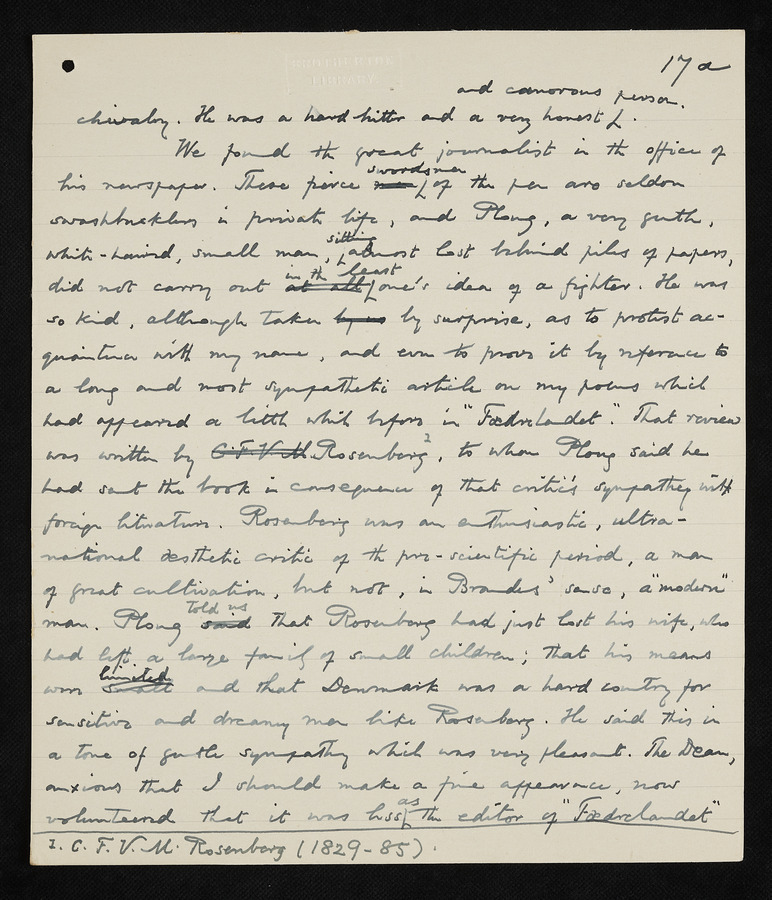 BROTHERTON
LIBRARY
17a
and canorous person.
chivalry. He was a hard hitter and a very honest
We found the great journalist in the office of
swordsmen
his newspaper. These fierce men of the pen are seldom
swashbucklers in private life, and Ploug, a very gentle,
sitting
white-haired, small man, almost lost behind piles of papers,
in the least
did not carry out at all one's idea of a fighter. He was
so kind, although taken by us by surprise, as to protest ac-
quaintance with my name, and even to prove it by reference to
a long and most sympathetic article on my poems which
had appeared a little while before in "Fædrelandet". That review
was written by C. F. V. M. Rosenberg², to whom Ploug said he
had sent the book in consequence of that critic's sympathy with
foreign literature. Rosenberg was an enthusiastic, ultra-
national æsthetic critic of the pre-scientific period, a man
of great cultivation, but not, in Brandes' sense, a "modern"
told us
man. Ploug said that Rosenberg had just lost his wife, who
had left a large family of small children; that his means
limited
were small and that Denmark was a hard country for
sensitive and dreamy men like Rosenberg. He said this in
a tone of gentle sympathy which was very pleasant. The Dean,
anxious that I should make a fine appearance, now
as
volunteered that it was less the editor of "Fædrelandet"
1. C. F. V. M. Rosenberg (1829-85).